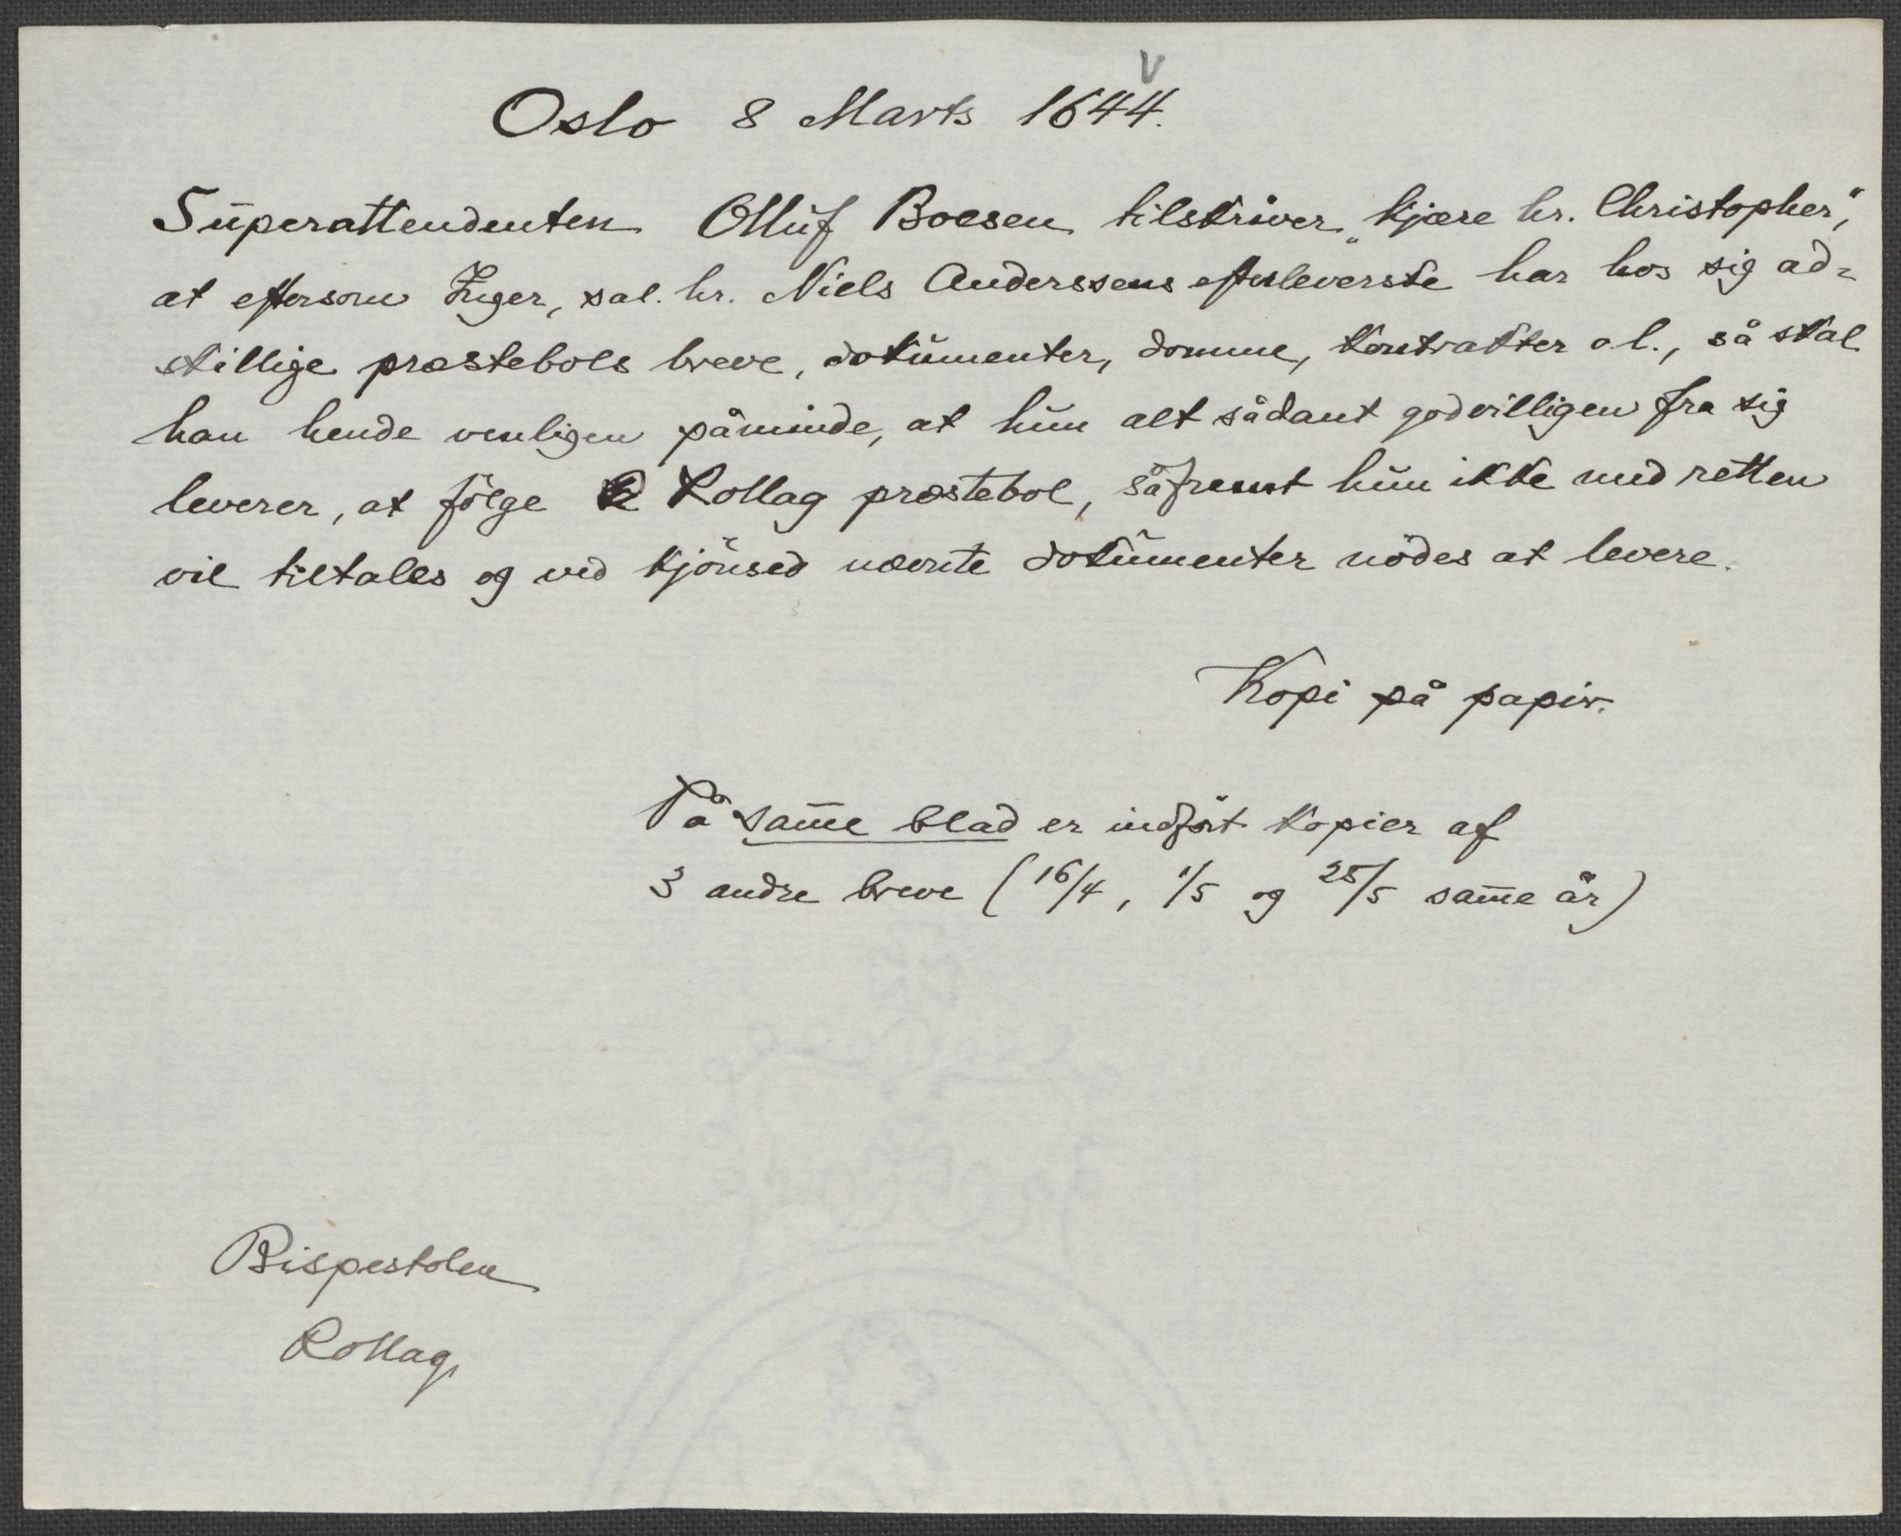 Oslo 8 Marts 1644.
Superattendenten Olluf Boesen tilskriver "kjære hr. Christopher",
at eftersom Inger, sal. hr. Niels Anderssens efterleverske har hos sig ad-
skillige præstebols breve, dokumenter, domme, kontrakter o.l., så skal
han hende venligen påminde, at hun alt sådant godvilligen fra sig
leverer, at følge Rollag præstebol, såfremt hun ikke med retten
vil tiltales og ved kjønsed nævnte dokumenter nødes at levere.
Kopi på papir.
På sam̄e blad er indført kopier af
3 andre breve (16/4, 1/5 og 25/5 sam̄e år)
Bispestolen
Rollag